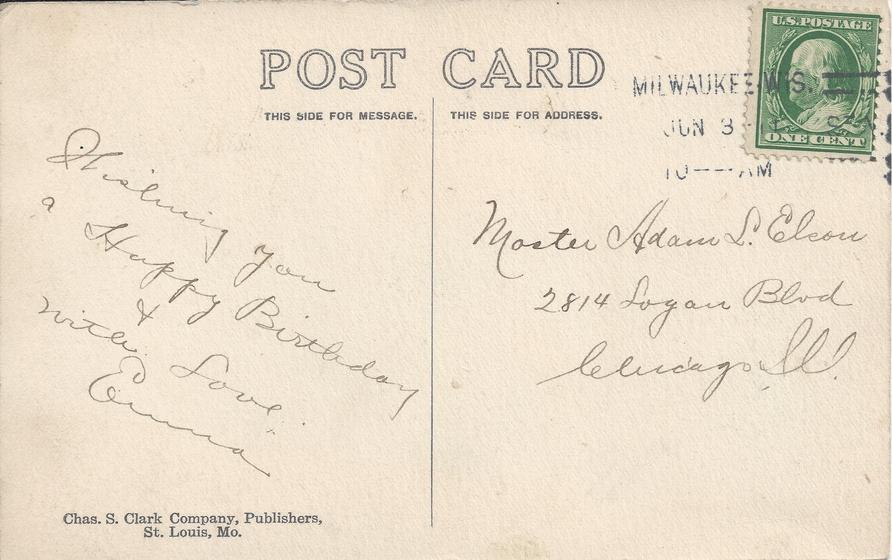 POST CARD
THIS SIDE FOR MESSAGE.
THIS SIDE FOR ADDRESS.
U.S. POSTAGE
ONE CENT
MILWAUKEE, WIS.
JUN 3
10 — AM
Wishing you
a Happy Birthday
&
with Love.
Emma
Master Adam L. Elson
2814 Logan Blvd
Chicago, Ill.
Chas. S. Clark Company, Publishers,
St. Louis, Mo.